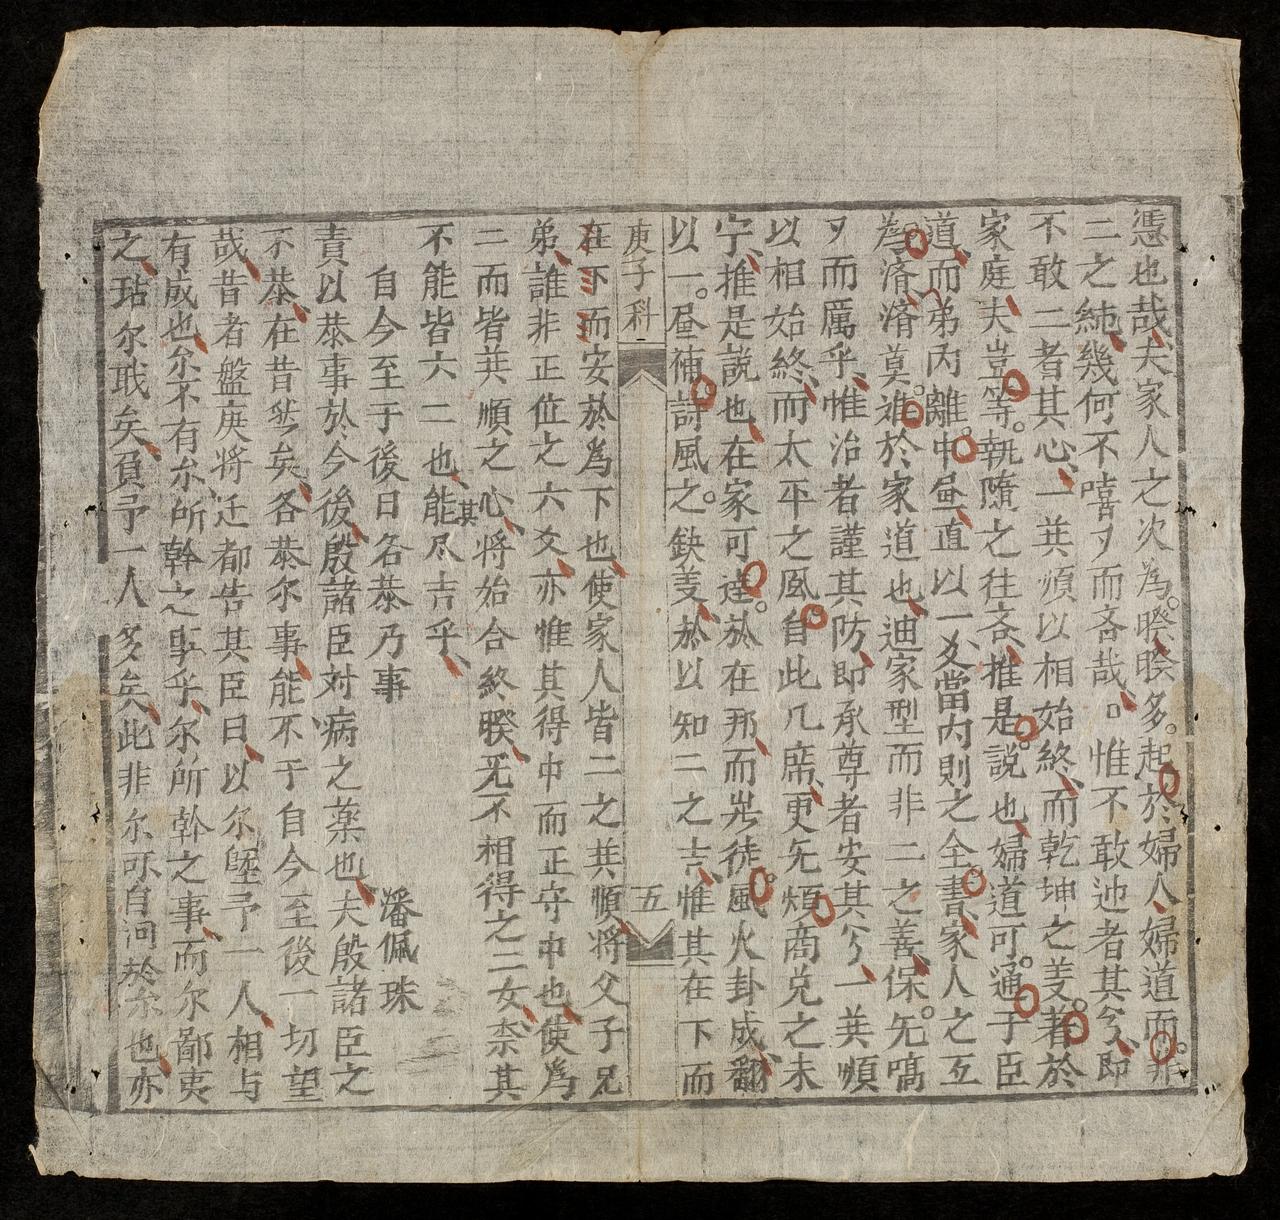 憑也哉夫家人之次為睽睽多起於婦人婦道而非
二之純幾何不嘻〻而吝哉惟不敢迆者其兮即
不敢二者其心一共順以相始終而乾坤之美著於
家庭夫豈等執隨之往吝推是說也婦道可通于臣
道而弟丙離中昼直以一爻當内則之全書家人之互
為濟濟莫进於家道也迪家型而非二之善保无嗃
〻而厲乎惟治者謹其防即承尊者安其兮一共順
以相始終而太平之風自此几席更无煩商兌之未
寧推是說也在家可達於在邦而茫徒風火卦成翻
以一昼補詩風之缺美於以知二之吉惟其在下而
庚子科 五
在下而安於為下也使家人皆二之共順將父子兄
弟誰非正位之六爻亦惟其得中而正守中也使為
二而皆共順之心將始合終睽旡不相得之二女柰其
不能皆六二也能尽其吉乎
自今至于後日各恭乃事 潘佩珠
責以恭事於今後殷諸臣対病之薬也夫殷諸臣之
不恭在昔然矣各恭尔事能不于自今至後一切望
哉昔者盤庚将迁都告其臣曰以尔曁予一人相与
有成也尔不有尔所幹之事乎尔所幹之事而尔鄙夷
之玷尔戝矣負予一人多矣此非尔可自问於尔也亦